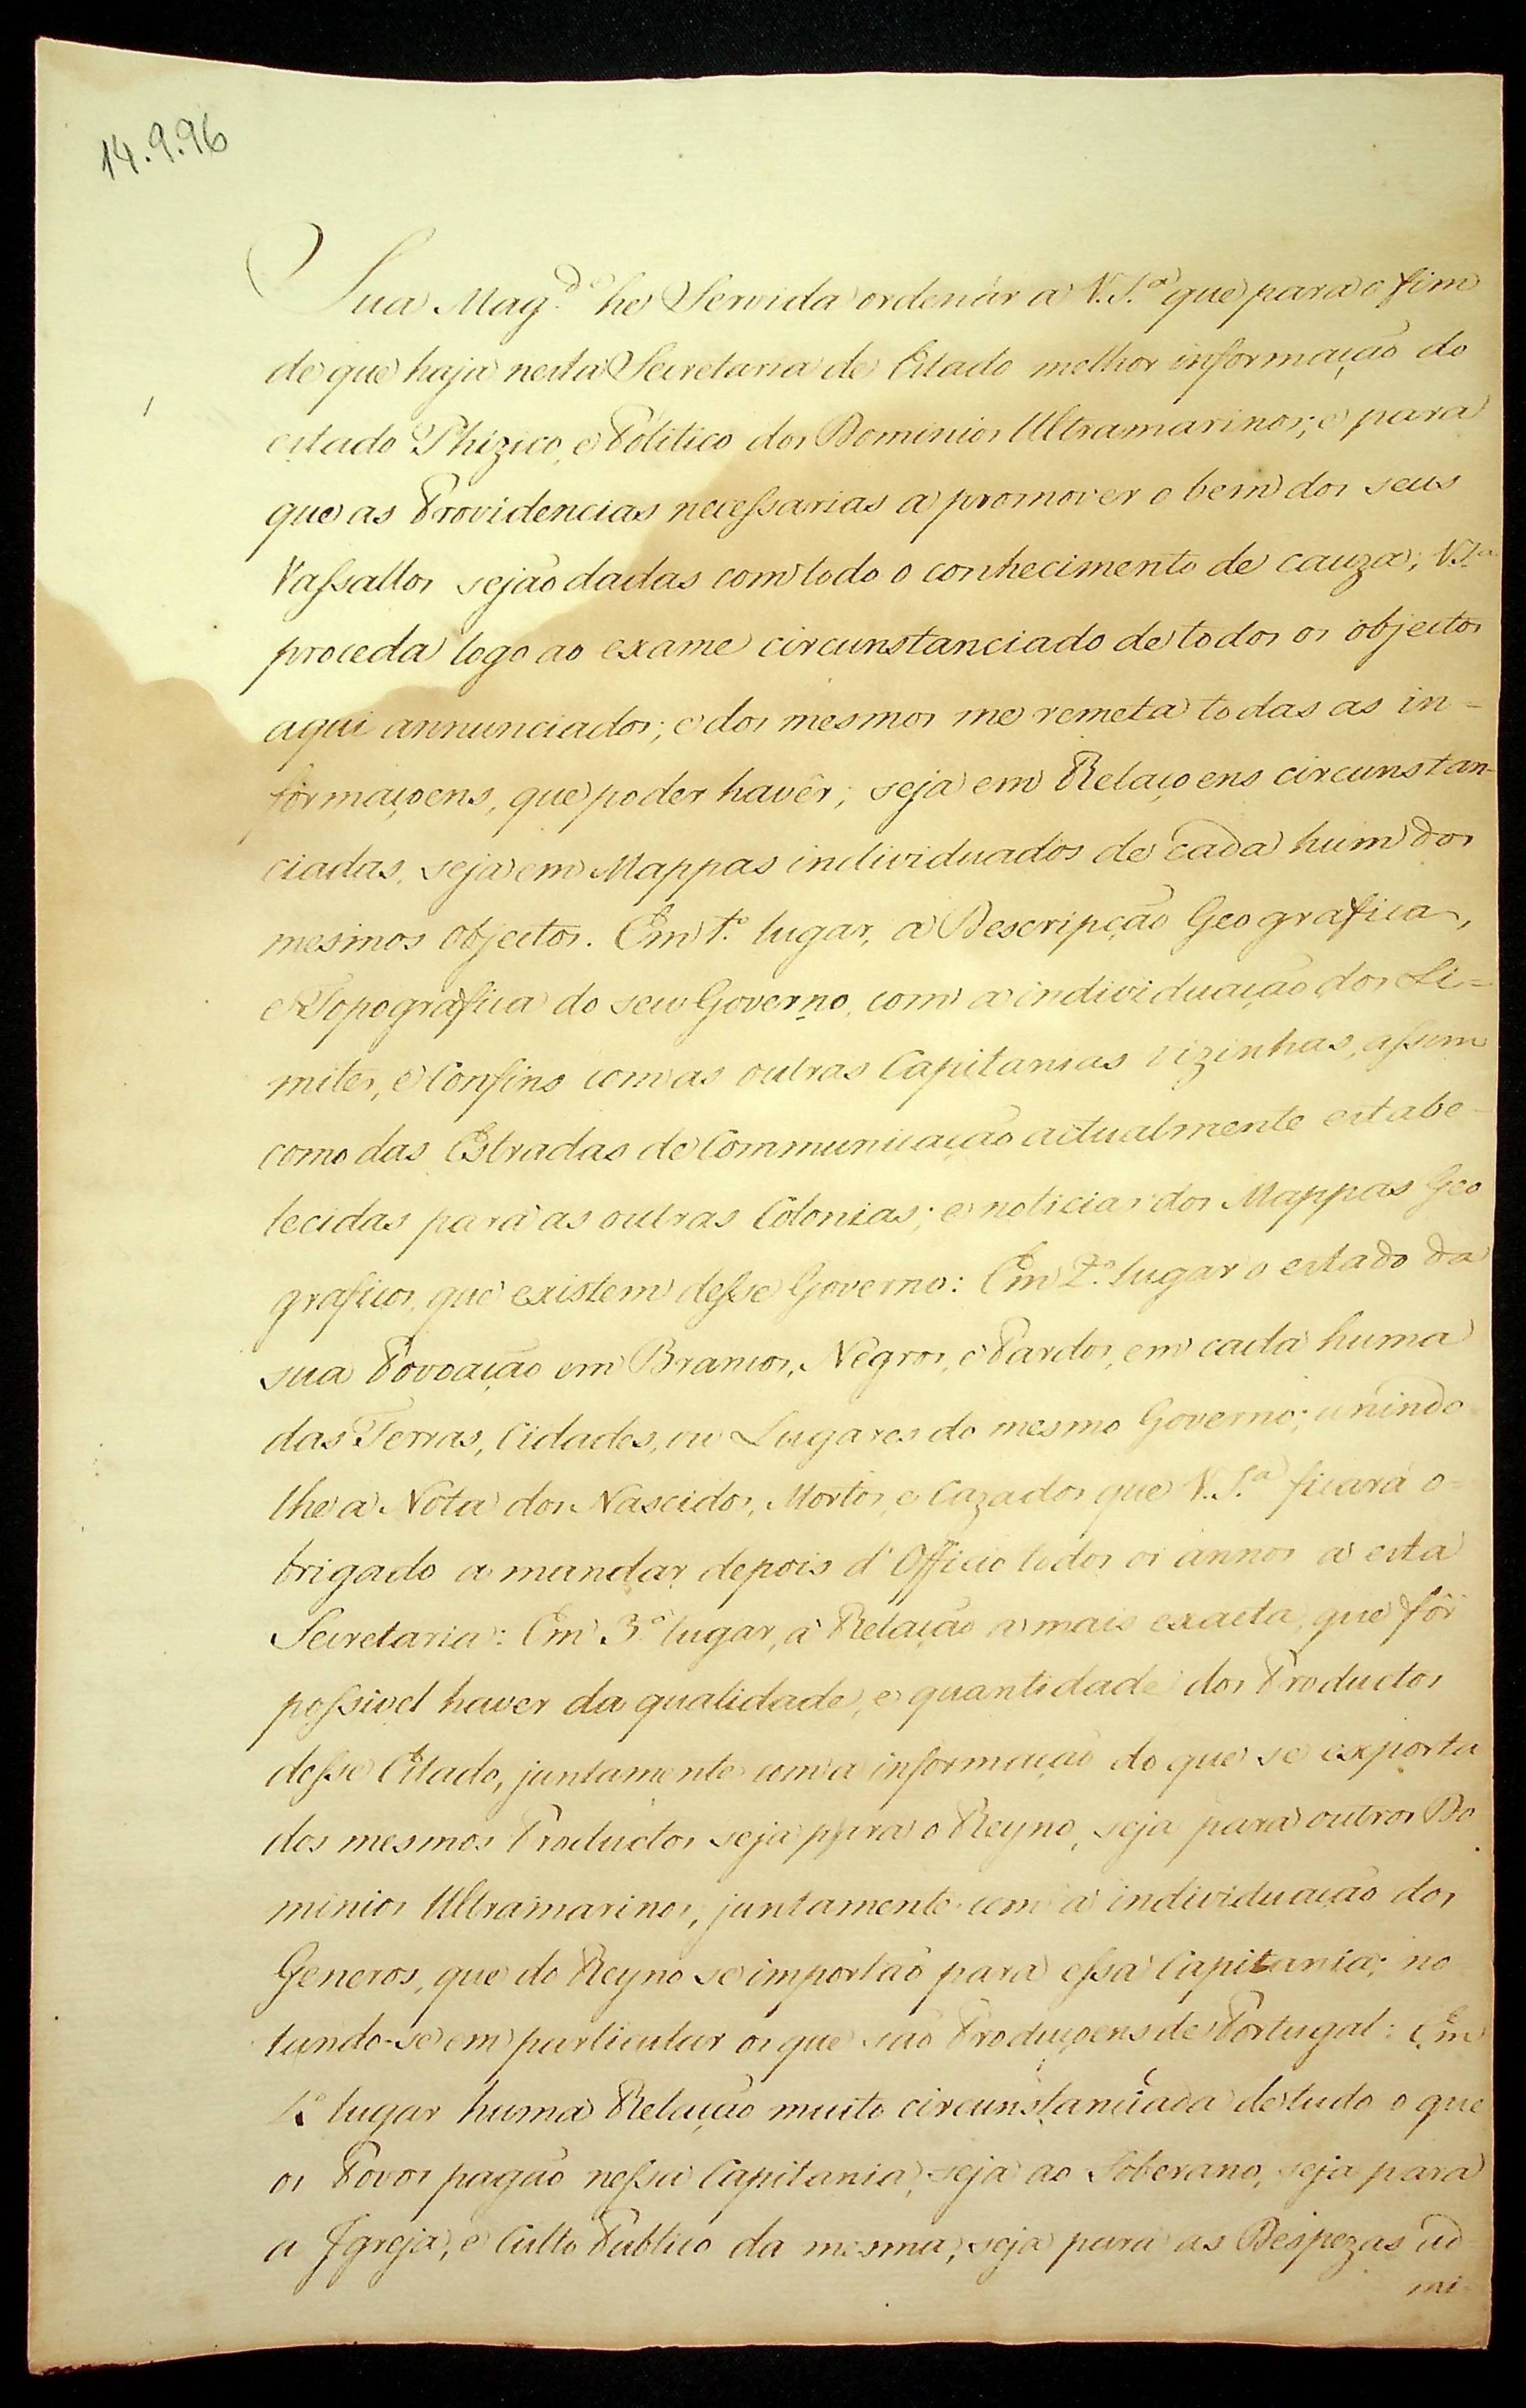 14.9.96
Sua Mag.de he Servida ordenár a V.S.ª que para o fim
de que haja nesta Secretaria de Estado melhor informação do
estado Phizico, e Politico dos Dominios Ultramarinos; e para
que as Providencias necessarias a promover o bem dos seus
Vassallos sejão dadas com todo o conhecimento de cauza; V.S.ª
proceda logo ao exame circunstanciado de todos os objectos
aqui annunciados; e dos mesmos me remeta todas as in-
formaçoens, que poder havêr; seja em Relaçoens circunstan-
ciadas, seja em Mappas individuados de cada hum dos
mesmos objectos. Em 1.º lugar, a Descripção Geografica,
e Topografica do seu Governo, com a individuação dos Li=
mites, e Confins com as outras Capitanias vizinhas, assim
como das Estradas de Communicação actualmente estabe-
lecidas para as outras Colonias; e noticias dos Mappas Geo
graficos, que existem desse Governo: Em 2.º lugar o estado da
sua Povoação em Brancos, Negros, e Pardos, em cada huma
das Terras, Cidades, ou Lugares do mesmo Governo; unindo=
lhe a Nota dos Nascidos, Mortos, e Cazados que V.S.ª ficará o=
brigado a mandar depois d'Officio todos os annos a esta
Secretaria: Em 3.º lugar, a Relação a mais exacta, que fôr
possivel haver da qualidade, e quantidade dos Productos
desse Estado, juntamente com a informação do que se exporta
dos mesmos Productos seja para o Reyno, seja para outros Do
minios Ultramarinos, juntamente com a individuação dos
Generos, que do Reyno se importão para essa Capitania; no
tando-se em particular os que são Producoens de Portugal: Em
4.º lugar huma Relação muito circunstanciada de tudo o que
os Povos pagão nessa Capitania, seja ao Soberano, seja para
a Igreja, e Culto Publico da mesma, seja para as Despezas ad
mi-